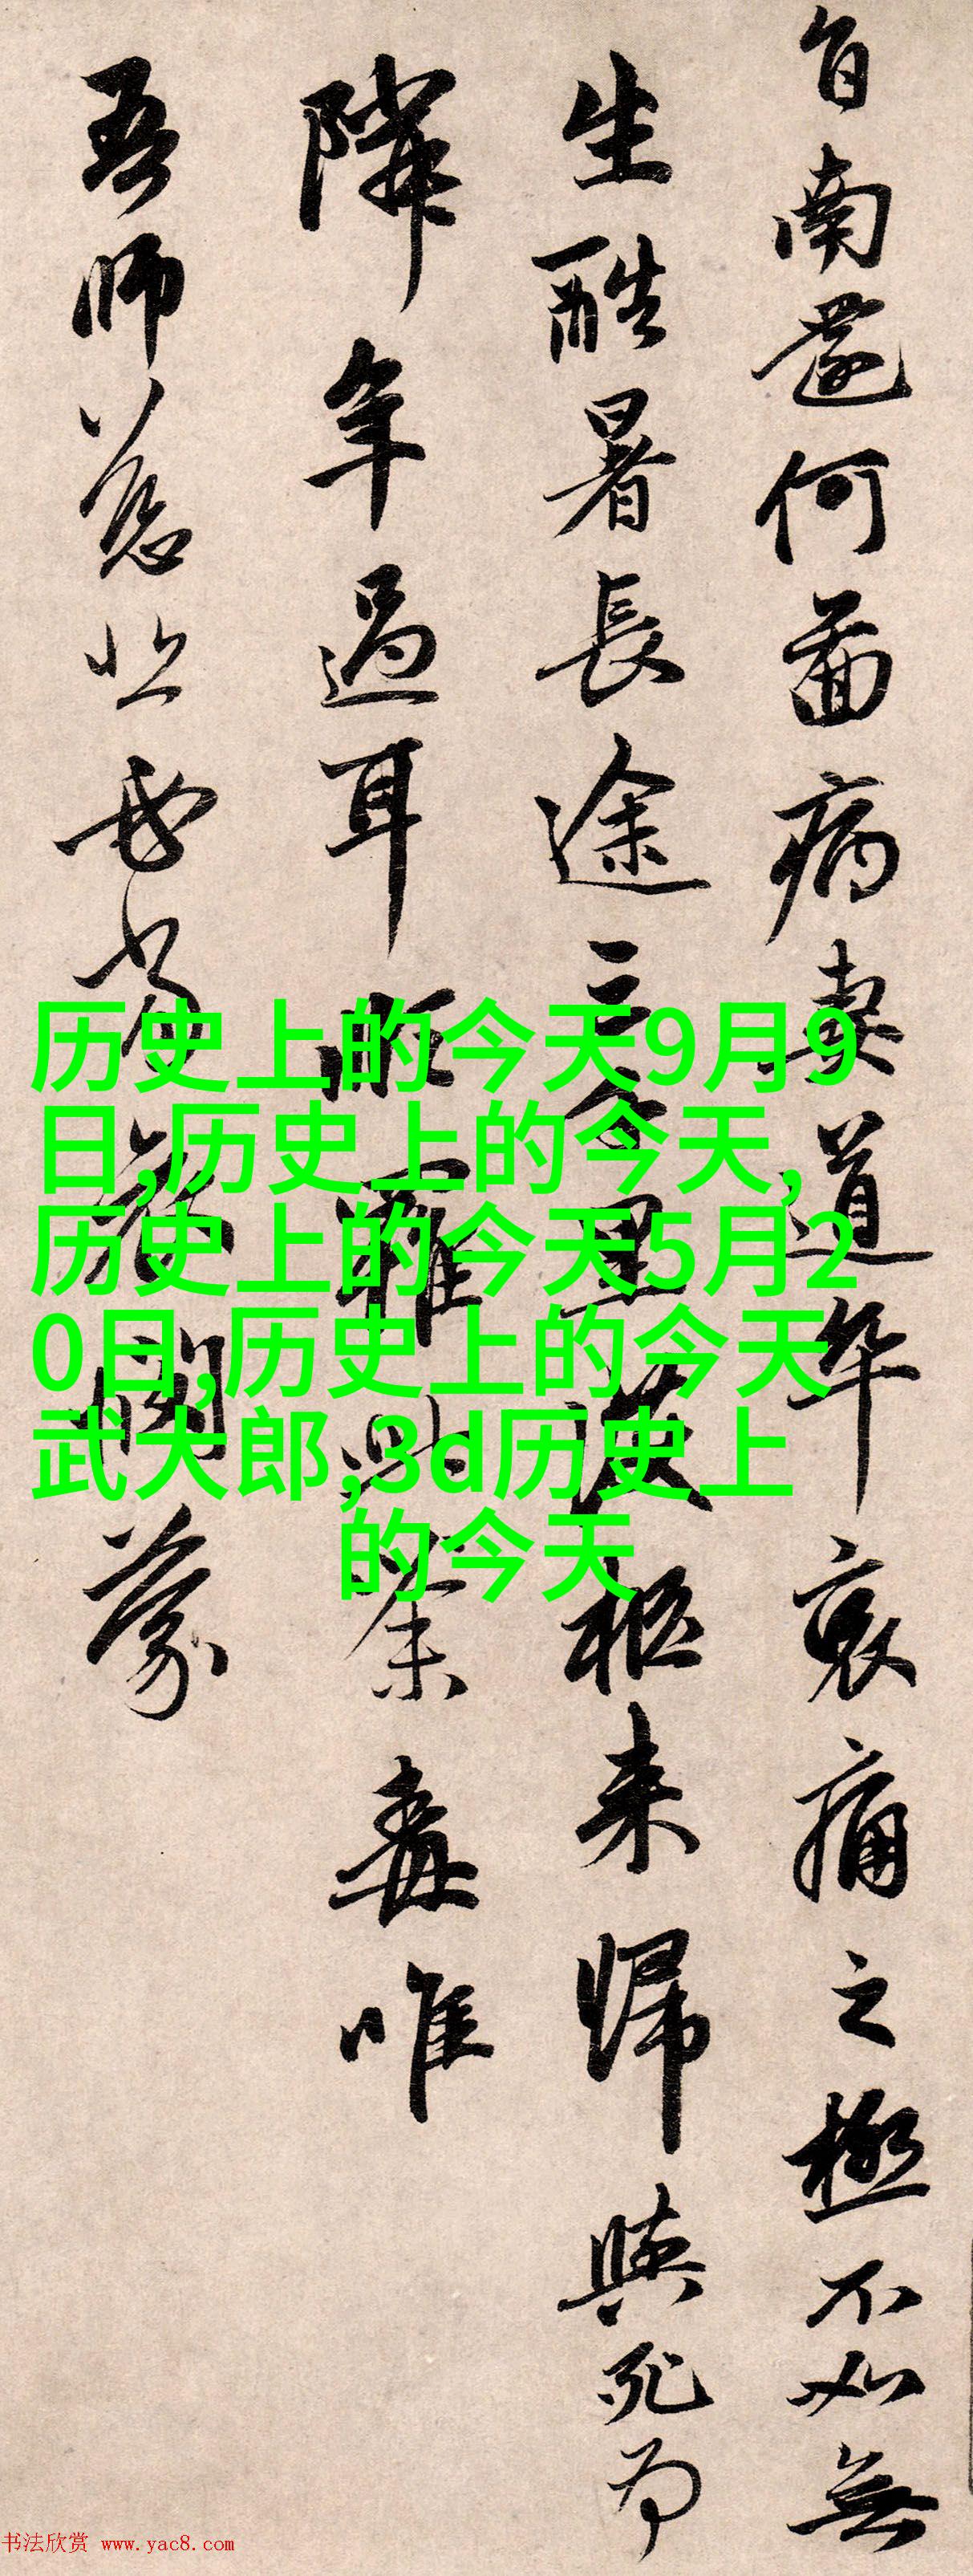 旨南還何圖病妻道卒哀痛之極不如無
生酷暑長途三千里護柩來歸與死為
隣年過耳順罹此荼毒唯
吾師慈悲憫蒙
历史上的今天9月9
日,历史上的今天,
历史上的今天5月2
0日,历史上的今天
武大郎,3d历史上
的今天
书法欣赏 www.yac8.com